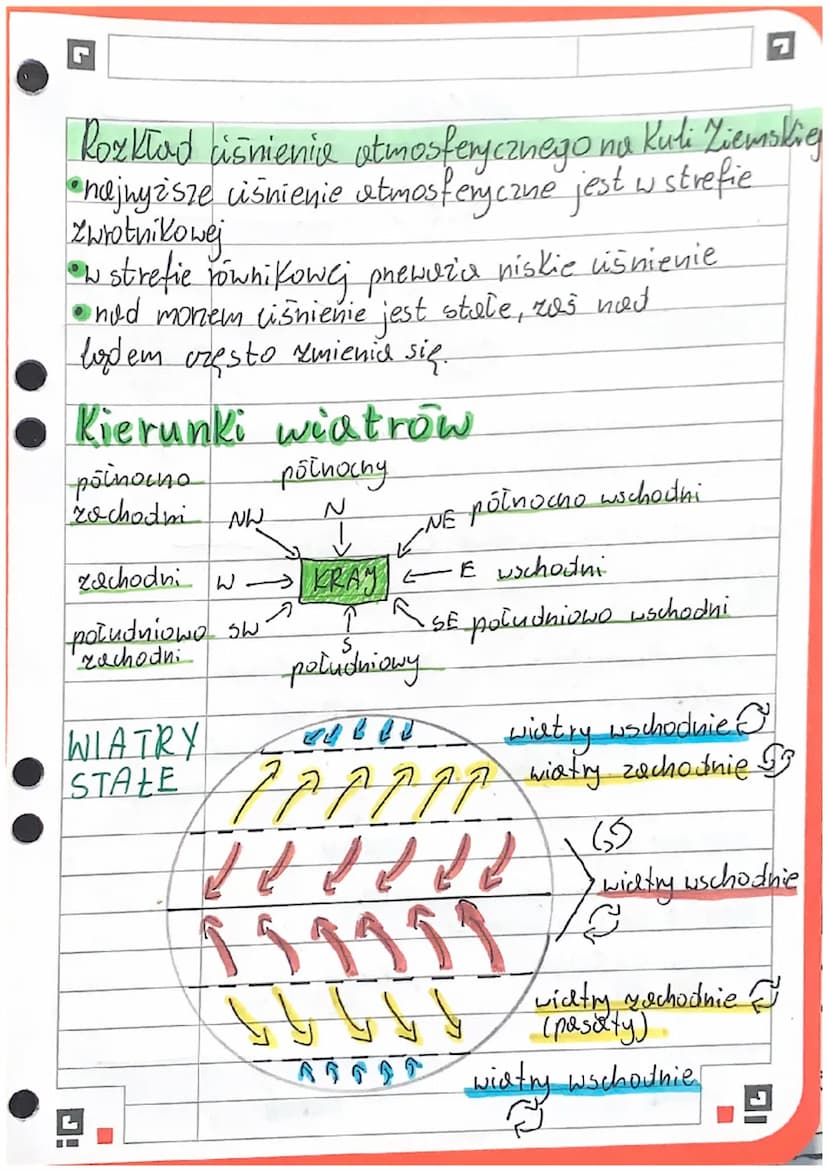 Rozkład ciśnienia atmosferycznego na Kuli Ziemskiej
• najwyższe ciśnienie atmosferyczne jest w strefie
zwrotnikowej
• w strefie równikowej przeważa niskie ciśnienie
• nad morzem ciśnienie jest stałe, zaś nad
lądem często zmienia się.
Kierunki wiatrów
północno zachodni
północny
NW
N
NE północno wschodni
zachodni W
KRAJ
E wschodni
południowo zachodni SW
S
południowy
SE południowo wschodni
WIATRY
STAŁE
wiatry wschodnie
wiatry zachodnie
wiatry wschodnie
wiatry zachodnie
(pasaty)
wiatry wschodnie